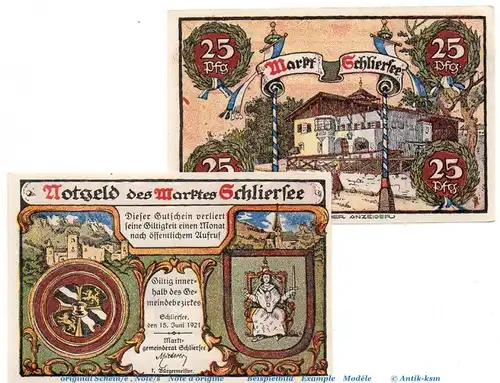 25 Pfg
25 Pfg
Markt Schliersee
25
25 Pfg
ER ANZEIGER
Notgeld des Marktes Schliersee
Dieser Gutschein verliert
seine Giltigkeit einen Monat
nach öffentlichem Aufruf
Giltig inner-
halb des Ge-
meindebezirkes
Schliersee,
den 15. Juni 1921
Markt-
gemeinderat Schliersee
1. Bürgermeister.
original Schein/e, Note/s Note d'origine Beispielbild Example Modèle © Antik-ksm